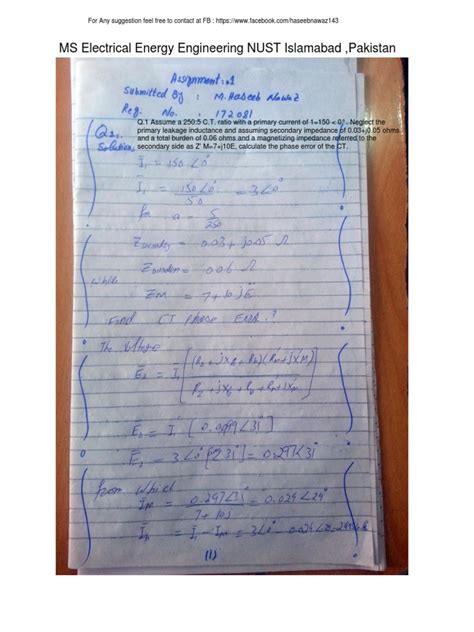 For Any suggestion feel free to contact at FB : https://www.facebook.com/haseebnawaz143
MS Electrical Energy Engineering NUST Islamabad ,Pakistan
Assignment:1
Submitted By : M.Haseeb Nawaz
Reg. No. : 172081
Q.1 Assume a 250:5 C.T. ratio with a primary current of 1=150 < 0°. Neglect the
primary leakage inductance and assuming secondary impedance of 0.03+j0.05 ohms
and a total burden of 0.06 ohms and a magnetizing impedance referred to the
secondary side as Z' M=7+j10E, calculate the phase error of the CT.
Q1.
Solution.
I1 = 150∠0°
I1 = 150∠0° / 50 = 3∠0°
for a = 5/250
Zsecondary = 0.03 + j0.05 Ω
Zburden = 0.06 Ω
While
ZM = 7+10j
Find CT Phase Error.?
The Voltage
E2 = I1
E2 = I1 [0.0099∠31°]
= 0.297∠31°
from which
IM = 0.297∠31° / 7+10j = 0.024∠24°
= I1 - IM = 3∠0 -
(1)